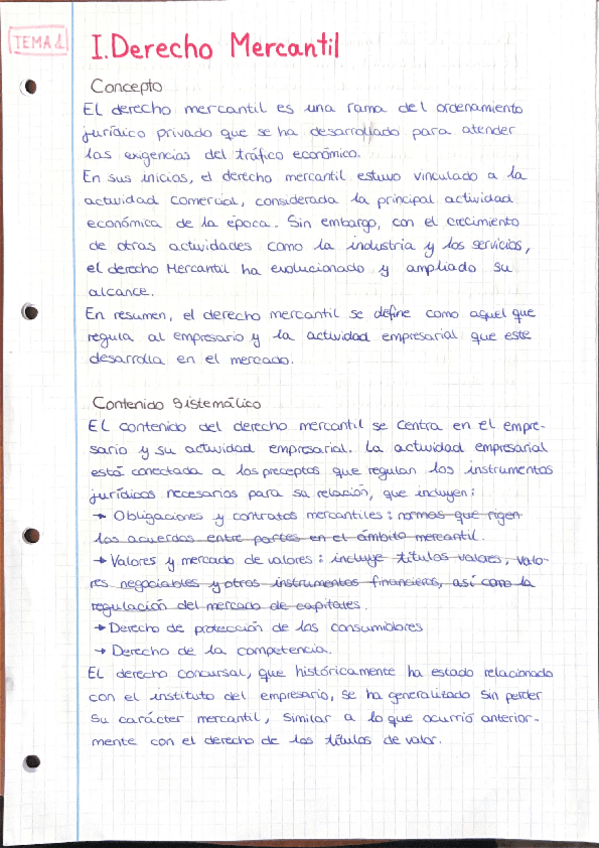 TEMA 1
I. Derecho Mercantil
Concepto
El derecho mercantil es una rama del ordenamiento
jurídico privado que se ha desarrollado para atender
las exigencias del tráfico económico.
En sus inicios, el derecho mercantil estuvo vinculado a la
actividad comercial, considerada la principal actividad
económica de la época. Sin embargo, con el crecimiento
de otras actividades como la industria y los servicios,
el derecho Mercantil ha evolucionado y ampliado su
alcance.
En resumen, el derecho mercantil se define como aquel que
regula al empresario y la actividad empresarial que este
desarrolla en el mercado.
Contenido Sistemático
El contenido del derecho mercantil se centra en el empre-
sario y su actividad empresarial. La actividad empresarial
está conectada a los preceptos que regulan los instrumentos
jurídicos necesarios para su relación, que incluyen:
→ Obligaciones y contratos mercantiles: normas que rigen
los acuerdos entre partes en el ámbito mercantil.
→ Valores y mercado de valores: incluye títulos valores, valo-
res negociables y otros instrumentos financieros, así como la
regulación del mercado de capitales.
→ Derecho de protección de los consumidores
→ Derecho de la competencia.
El derecho concursal, que históricamente ha estado relacionado
con el instituto del empresario, se ha generalizado sin perder
su carácter mercantil, similar a lo que ocurrió anterior-
mente con el derecho de los títulos de valor.